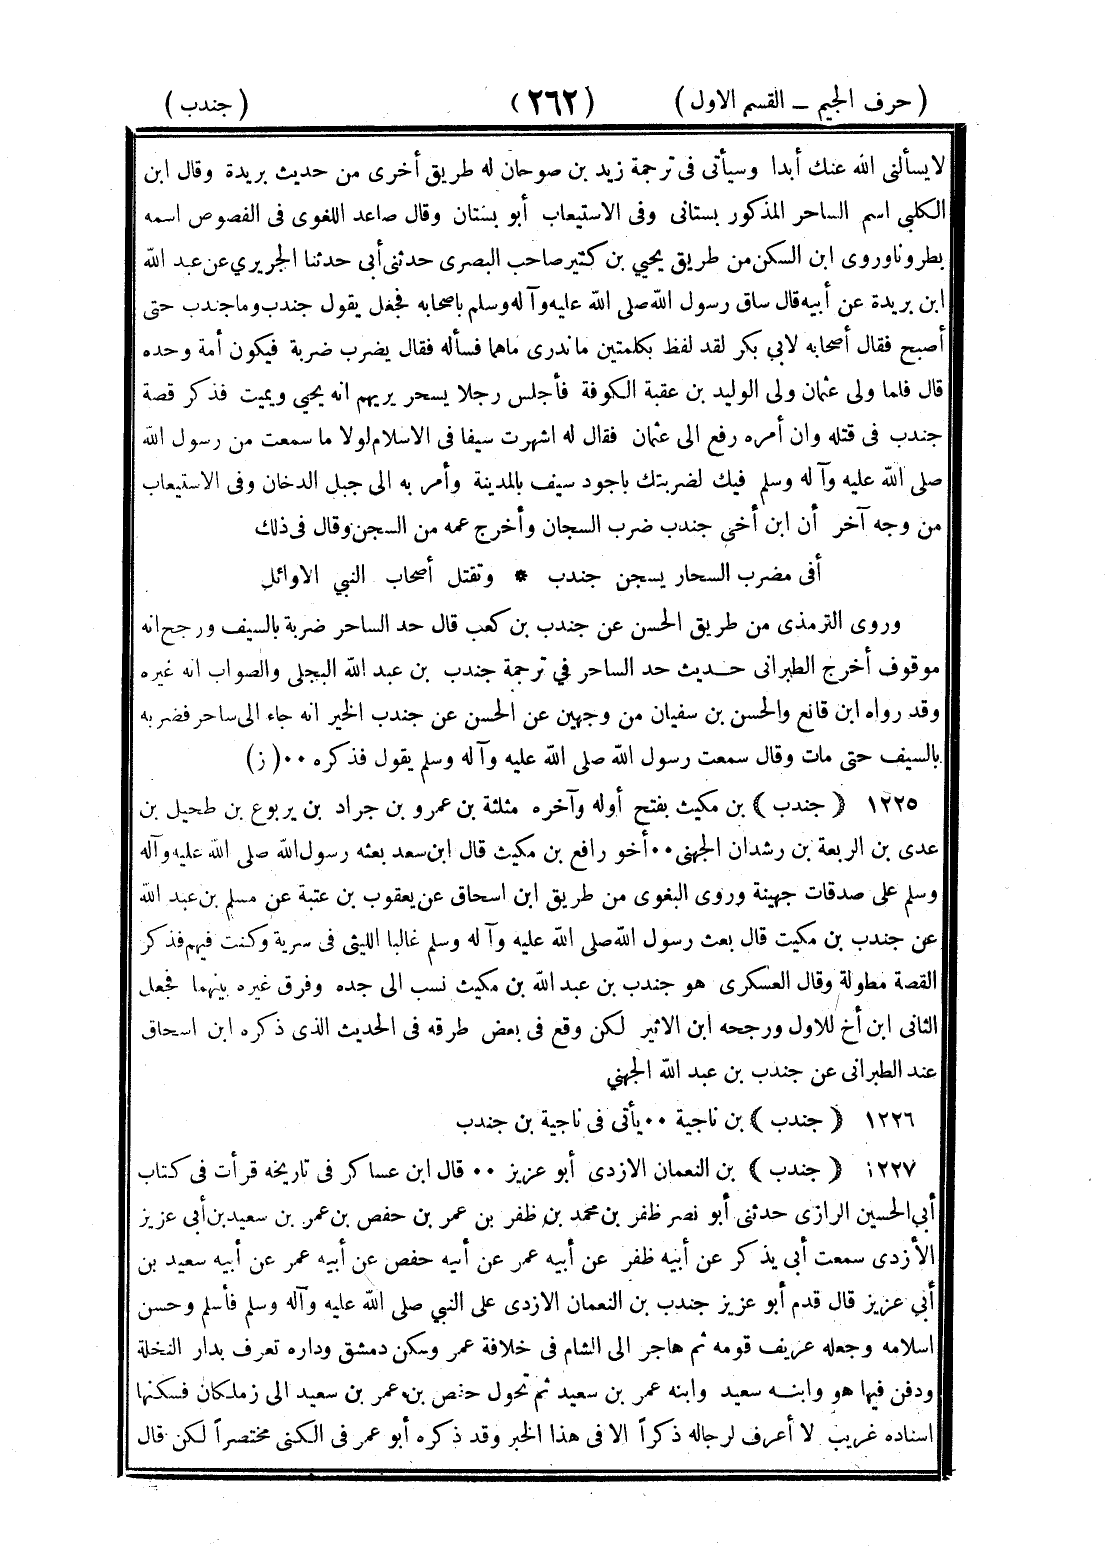 ( حرف الجيم – القسم الاول ) (٢٦٢) ( جندب )
لا يسألنى الله عنك أبدا وسيأتى فى ترجمة زيد بن صوحان له طريق أخرى من حديث بريدة وقال ابن
الكلبي اسم الساحر المذكور بستانى وفى الاستيعاب أبو بستان وقال صاعد اللغوى فى الفصوص اسمه
بطرونا وروى ابن السكن من طريق يحيي بن كثير صاحب البصرى حدثنى أبى حدثنا الجريري عن عبد الله
ابن بريدة عن أبيه قال ساق رسول الله صلى الله عليه وآله وسلم باصحابه فجعل يقول جندب وما جندب حتى
أصبح فقال أصحابه لابي بكر لقد لفظ بكلمتين ما ندرى ماهما فسأله فقال يضرب ضربة فيكون أمة وحده
قال فلما ولى عثمان ولى الوليد بن عقبة الكوفة فأجلس رجلا يسحر يريهم انه يحيي ويميت فذكر قصة
جندب فى قتله وان أمره رفع الى عثمان فقال له اشهرت سيفا فى الاسلام لولا ما سمعت من رسول الله
صلى الله عليه وآله وسلم فيك لضربتك باجود سيف بالمدينة وأمر به الى جبل الدخان وفى الاستيعاب
من وجه آخر أن ابن أخى جندب ضرب السجان وأخرج عمه من السجن وقال فى ذلك
أفى مضرب السحار يسجن جندب * وتقتل أصحاب النبي الاوائل
وروى الترمذى من طريق الحسن عن جندب بن كعب قال حد الساحر ضربة بالسيف ورجح انه
موقوف أخرج الطبرانى حديث حد الساحر في ترجمة جندب بن عبد الله البجلى والصواب انه غيره
وقد رواه ابن قانع والحسن بن سفيان من وجهين عن الحسن عن جندب الخير انه جاء الى ساحر فضربه
بالسيف حتى مات وقال سمعت رسول الله صلى الله عليه وآله وسلم يقول فذكره ٠٠( ز )
١٢٢٥ ( جندب ) بن مكيث بفتح أوله وآخره مثلثة بن عمرو بن جراد بن يربوع بن طحيل بن
عدى بن الربعة بن رشدان الجهنى ٠٠ أخو رافع بن مكيث قال ابن سعد بعثه رسول الله صلى الله عليه وآله
وسلم على صدقات جهينة وروى البغوى من طريق ابن اسحاق عن يعقوب بن عتبة عن مسلم بن عبد الله
عن جندب بن مكيث قال بعث رسول الله صلى الله عليه وآله وسلم غالبا الليثى فى سرية وكنت فيهم فذكر
القصة مطولة وقال العسكرى هو جندب بن عبد الله بن مكيث نسب الى جده وفرق غيره بينهما فجعل
الثانى ابن أخ للاول ورجحه ابن الاثير لكن وقع فى بعض طرقه فى الحديث الذى ذكره ابن اسحاق
عند الطبرانى عن جندب بن عبد الله الجهني
١٢٢٦ ( جندب ) بن ناجية ٠٠ يأتى فى ناجية بن جندب
١٢٢٧ ( جندب ) بن النعمان الازدى أبو عزيز ٠٠ قال ابن عساكر فى تاريخه قرأت فى كتاب
أبي الحسين الرازى حدثنى أبو نصر ظفر بن محمد بن ظفر بن عمر بن حفص بن عمر بن سعيد بن أبي عزيز
الأزدى سمعت أبي يذكر عن أبيه ظفر عن أبيه عمر عن أبيه حفص عن أبيه عمر عن أبيه سعيد بن
أبي عزيز قال قدم أبو عزيز جندب بن النعمان الازدى على النبي صلى الله عليه وآله وسلم فأسلم وحسن
اسلامه وجعله عريف قومه ثم هاجر الى الشام فى خلافة عمر وسكن دمشق وداره تعرف بدار النخلة
ودفن فيها هو وابنه سعيد وابنه عمر بن سعيد ثم تحول حفص بن عمر بن سعيد الى زملكان فسكنها
اسناده غريب لا أعرف لرجاله ذكراً الا فى هذا الخبر وقد ذكره أبو عمر فى الكنى مختصراً لكن قال